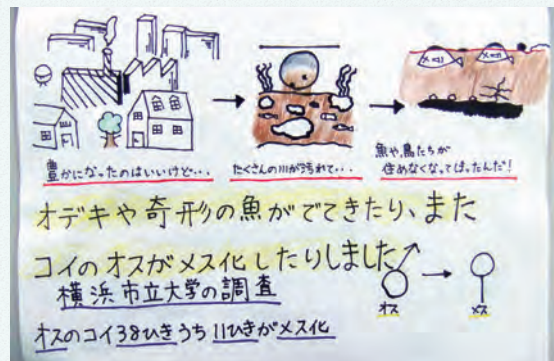 豊かになったのはいいけど・・・
たくさんの川が汚れて・・・
魚や、鳥たちが
住めなくなってしまったんだ!
オデキや奇形の魚がでてきたり、また
コイのオスがメス化したりしました
横浜市立大学の調査
オス
メス
オスのコイ38ひきうち11ひきがメス化